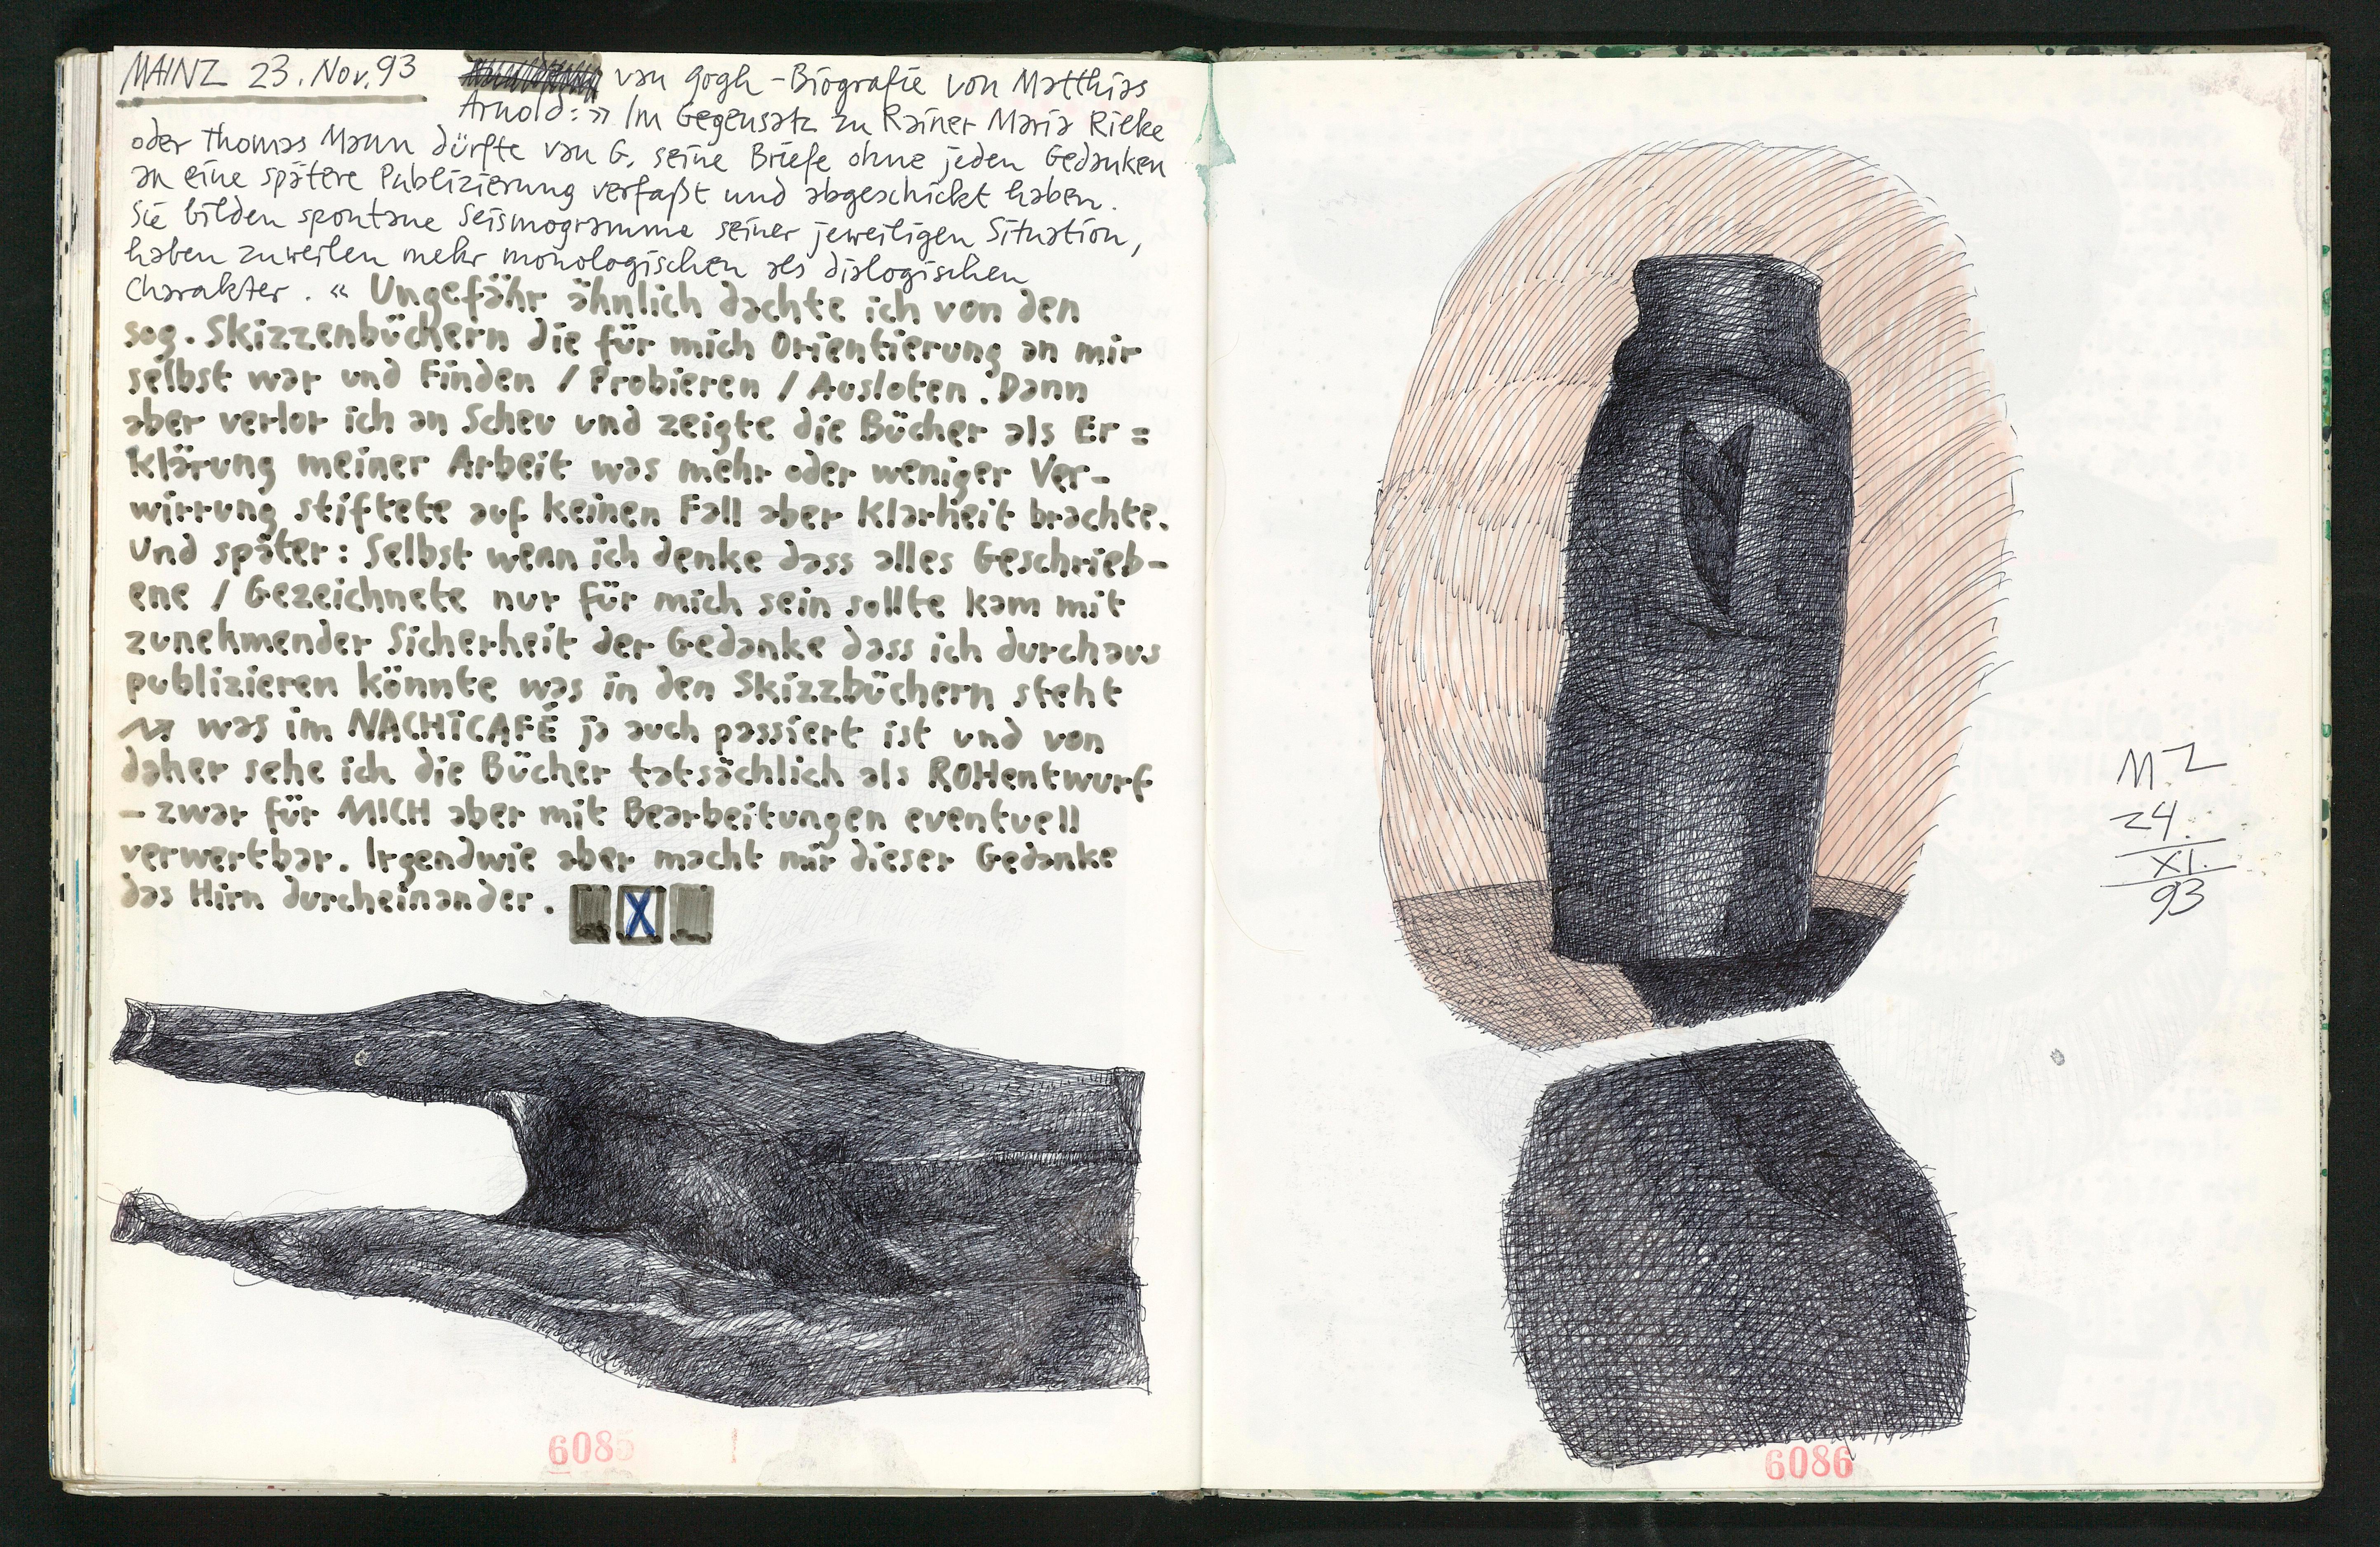 MAINZ 23. Nov. 93
van Gogh - Biografie von Matthias
Arnold: » Im Gegensatz zu Rainer Maria Rilke
oder Thomas Mann dürfte van G. seine Briefe ohne jeden Gedanken
an eine spätere Publizierung verfaßt und abgeschickt haben.
Sie bilden spontane Seismogramme seiner jeweiligen Situation,
haben zuweilen mehr monologischen als dialogischen
Charakter. « Ungefähr ähnlich dachte ich von den
sog. Skizzenbüchern die für mich Orientierung an mir
selbst war und Finden / Probieren / Ausloten. Dann
aber verlor ich an Scheu und zeigte die Bücher als Er=
klärung meiner Arbeit was mehr oder weniger Ver-
wirrung stiftete auf keinen Fall aber Klarheit brachte.
Und später: Selbst wenn ich denke dass alles Geschrieb-
ene / Gezeichnete nur für mich sein sollte kam mit
zunehmender Sicherheit der Gedanke dass ich durchaus
publizieren könnte was in den Skizzbüchern steht
was im NACHTCAFÉ ja auch passiert ist und von
daher sehe ich die Bücher tatsächlich als ROHentwurf
- zwar für MICH aber mit Bearbeitungen eventuell
verwertbar. Irgendwie aber macht mir dieser Gedanke
das Hirn durcheinander.
X
6085
MZ
24.
XI.
93
6086